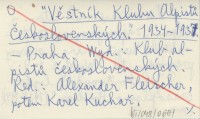 "Věstník Klubu Alpistů
Československých" 1934-1937
- Praha. Wyd.: Klub al-
pistů československých.
Red.: Alexander Fleischer,
potem Karel Kuchař.